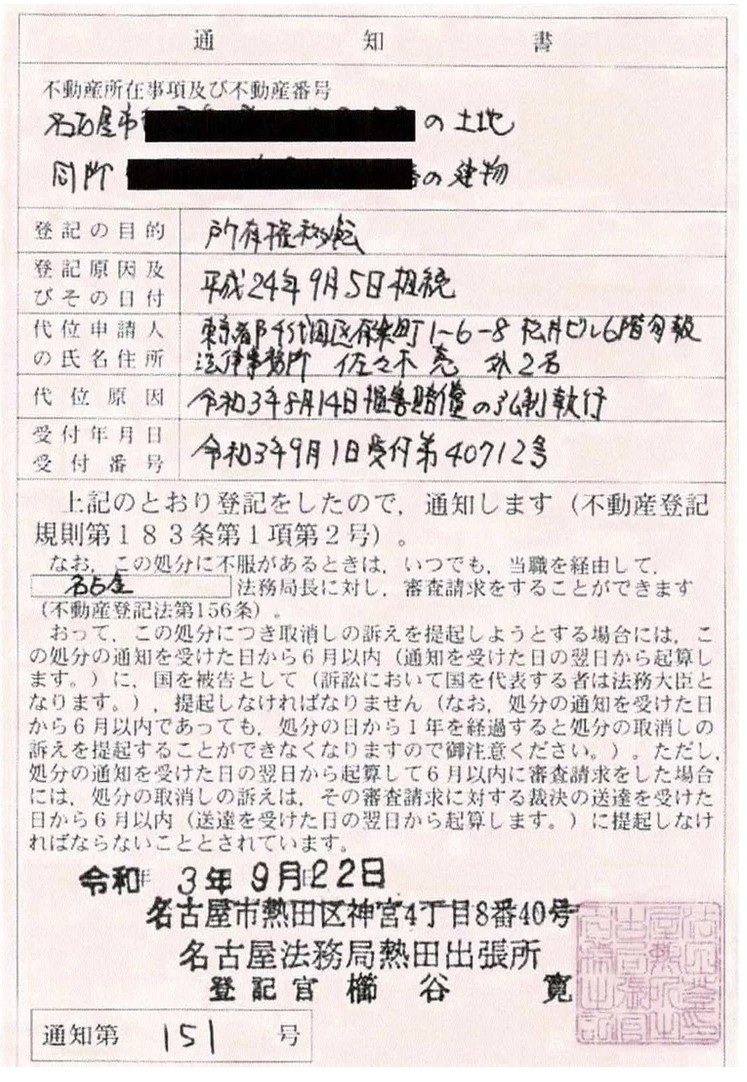 通知書
不動産所在事項及び不動産番号
名古屋市 の土地
同所 の建物
登記の目的 所有権移転
登記原因及びその日付 平成24年9月5日相続
代位申請人の氏名住所 東京都千代田区有楽町1-6-8 松井ビル6階旬報
法律事務所 佐々木亮 外2名
代位原因 令和3年8月14日損害賠償の強制執行
受付年月日受付番号 令和3年9月1日受付第40712号
上記のとおり登記をしたので，通知します（不動産登記
規則第183条第1項第2号）。
なお，この処分に不服があるときは，いつでも，当職を経由して，
名古屋 法務局長に対し，審査請求をすることができます
（不動産登記法第156条）。
おって，この処分につき取消しの訴えを提起しようとする場合には，こ
の処分の通知を受けた日から6月以内（通知を受けた日の翌日から起算し
ます。）に，国を被告として（訴訟において国を代表する者は法務大臣と
なります。），提起しなければなりません（なお，処分の通知を受けた日
から6月以内であっても，処分の日から1年を経過すると処分の取消しの
訴えを提起することができなくなりますので御注意ください。）。ただし，
処分の通知を受けた日の翌日から起算して6月以内に審査請求をした場合
には，処分の取消しの訴えは，その審査請求に対する裁決の送達を受けた
日から6月以内（送達を受けた日の翌日から起算します。）に提起しなけ
ればならないこととされています。
令和 3年 9月22日
名古屋市熱田区神宮4丁目8番40号
名古屋法務局熱田出張所
登記官 櫛谷 寛
通知第 151 号